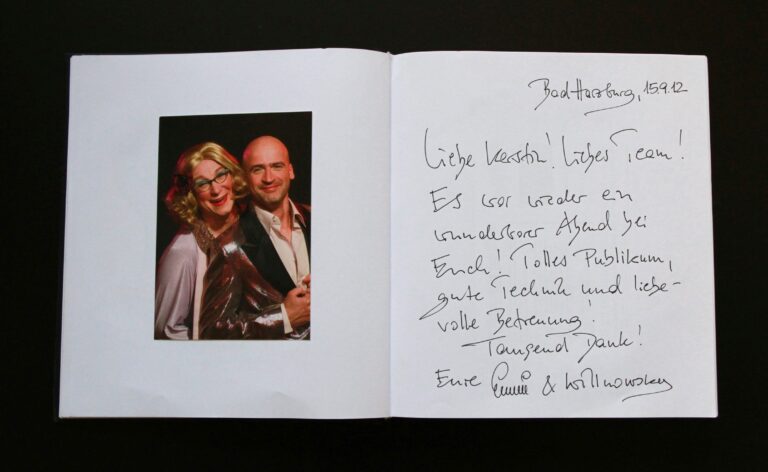 Bad Harzburg, 15.9.12
Liebe Kerstin! Liebes Team!
Es war wieder ein
wunderbarer Abend bei
Euch! Tolles Publikum,
gute Technik und liebe-
volle Betreuung!
Tausend Dank!
Eure Emmi & Willnowsky